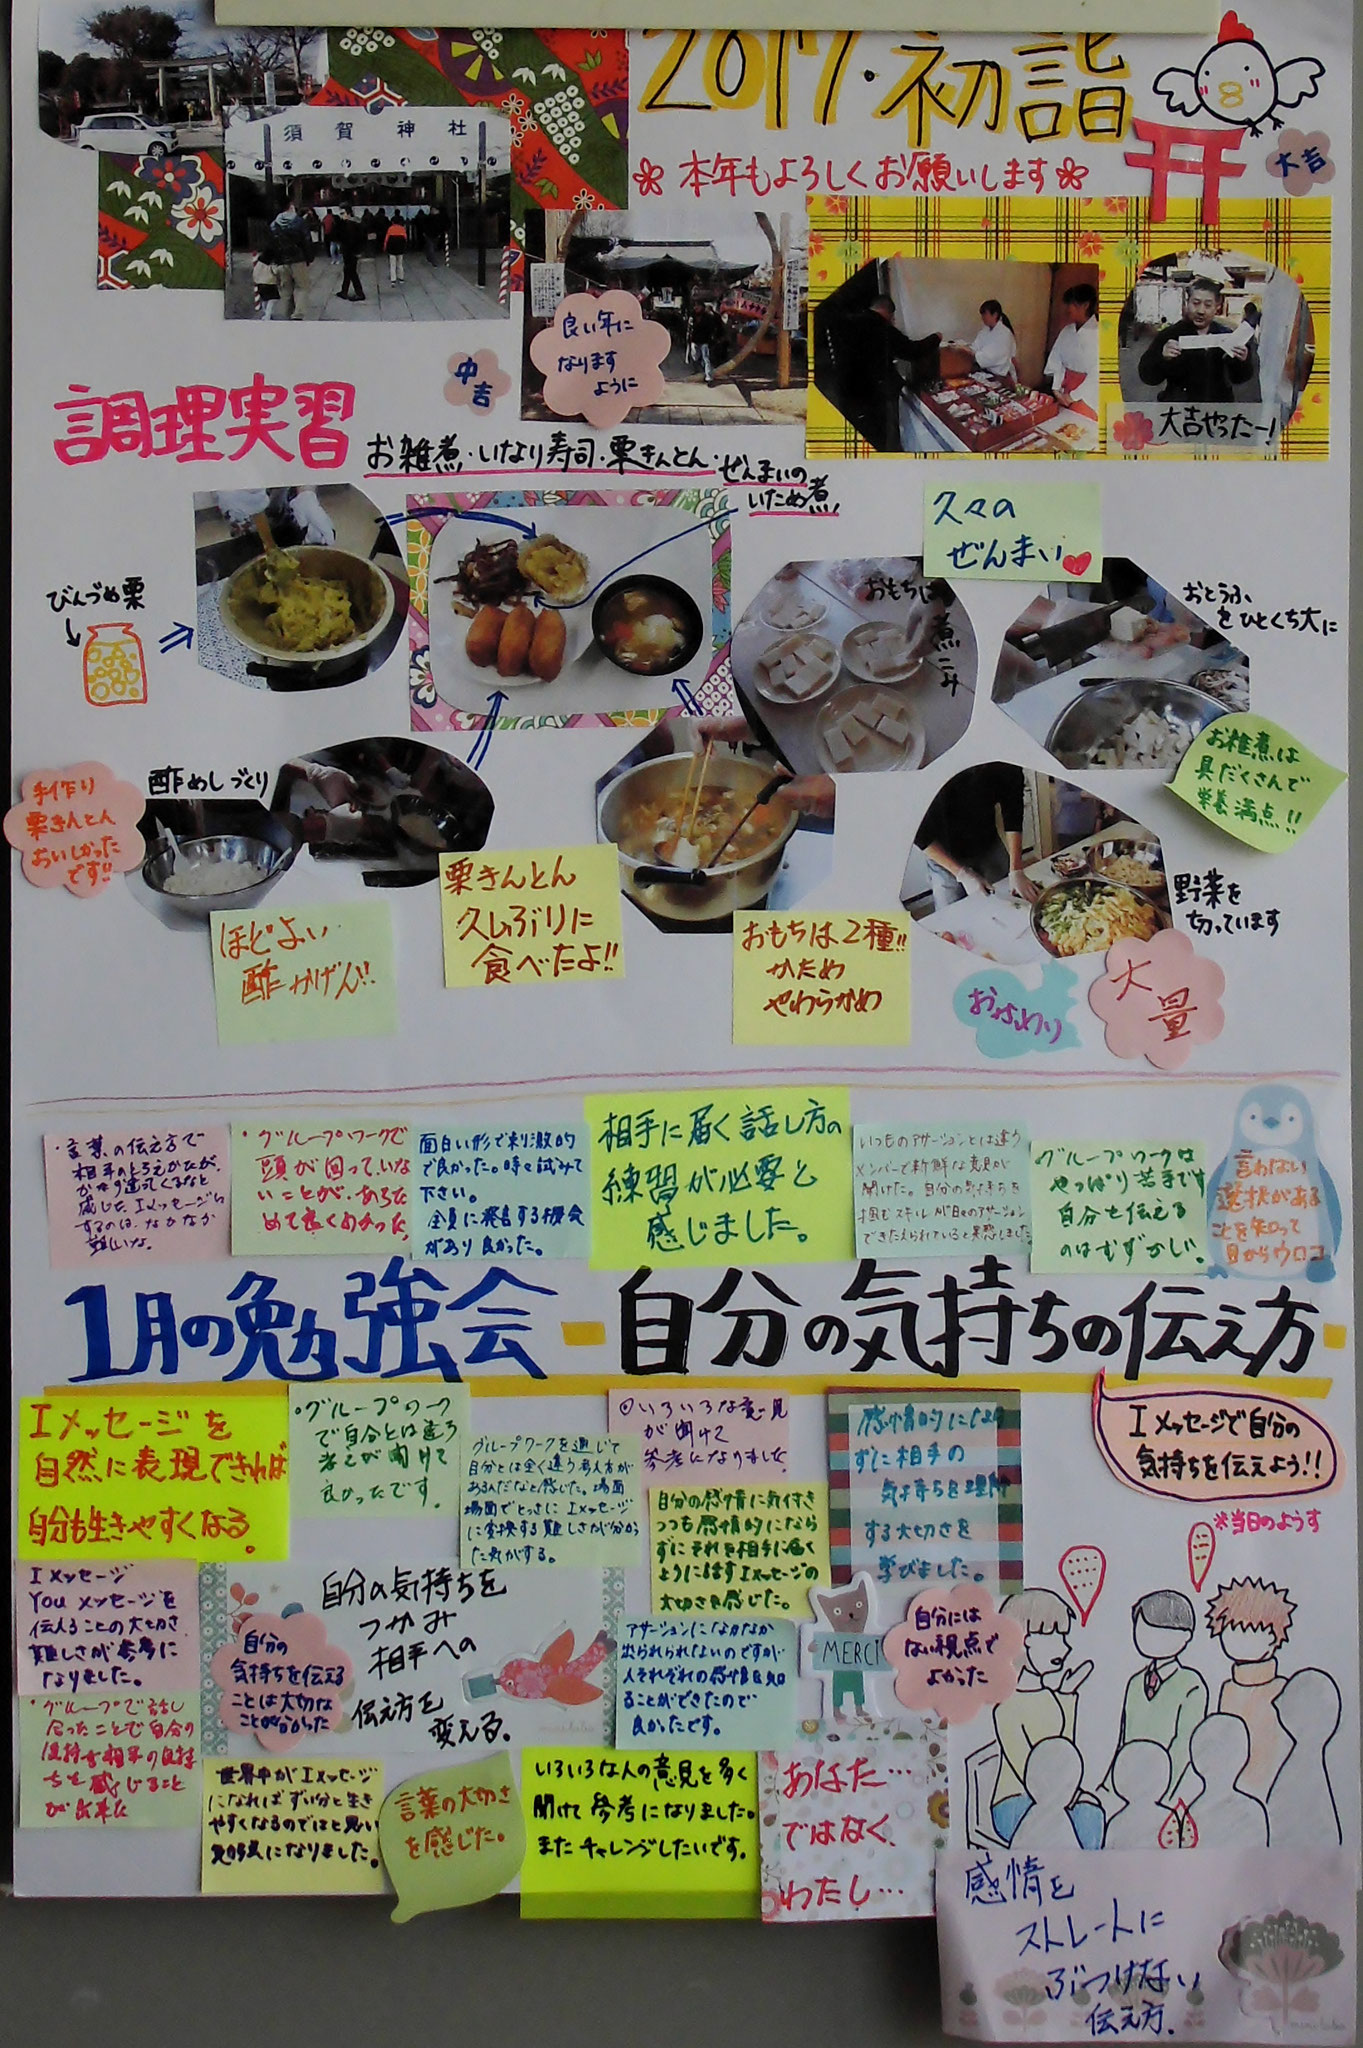 2017.初詣
本年もよろしくお願いします
大吉
須賀神社
良い年に
なります
ように
中吉
大吉やったー!
調理実習
お雑煮・いなり寿司・栗きんとん・ぜんまいの
いため煮
久々の
ぜんまい
びんづめ栗
おもちは
煮こみ
おとうふ
をひとくち大に
お雑煮は
具だくさんで
栄養満点!!
手作り
栗きんとん
おいしかった
です!!
酢めしづくり
ほどよい
酢かげん!!
栗きんとん
久しぶりに
食べたよ!!
おもちは2種!!
かため
やわらかめ
野菜を
切っています
おかわり
大量
・言葉の伝え方で
相手のとらえかたが、
かなり違ってくるなと
感じた。Iメッセージに
するのは、なかなか
難しいな。
・グループワークで
頭が回っていな
いことが、あらた
めて良くわかった。
面白い形で刺激的
で良かった。時々試みて
下さい。
全員に発言する機会
があり良かった。
相手に届く話し方の
練習が必要と
感じました。
いつものアサーションとは違う
メンバーで新鮮な意見が
聞けた。自分の気持ちを
掴むスキルが日々のアサーション
できたえられていると実感しました
グループワークは
やっぱり苦手です
自分を伝える
のはむずかしい。
言わない
選択がある
ことを知って
目からウロコ
1月の勉強会-自分の気持ちの伝え方-
Iメッセージを
自然に表現できれば
自分も生きやすくなる。
・グループワーク
で自分とは違う
考えが聞けて
良かったです。
グループワークを通じて
自分とは全く違う考え方が
あるんだなと感じた。場面
場面でとっさにIメッセージ
に変換する難しさが分かっ
た気がする。
◎いろいろな意見
が聞けて
参考になりました。
自分の感情に気付き
つつも感情的になら
ずにそれを相手に届く
ように話すIメッセージの
大切さを感じた。
感情的になら
ずに相手の
気持ちを理解
する大切さを
学びました。
Iメッセージで自分の
気持ちを伝えよう!!
※当日のようす
Iメッセージ
Youメッセージを
伝えることの大切さ
難しさが参考に
なりました。
自分の
気持ちを伝える
ことは大切な
ことが分かった
自分の気持ちを
つかみ
相手への
伝え方を
変える。
アサーションになかなか
出られられないのですが
人それぞれの感情を知
ることができたので
良かったです。
MERCI
自分には
ない視点で
よかった
・グループで話し
合ったことで自分の
気持を相手の気持
ちを感じること
が出来た
世界中がIメッセージ
になればずい分と生き
やすくなるのではと思い
勉強になりました。
言葉の大切さ
を感じた。
いろいろな人の意見を多く
聞けて参考になりました。
またチャレンジしたいです。
あなた…
ではなく、
わたし…
感情を
ストレートに
ぶつけない
伝え方.